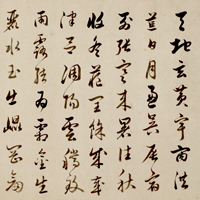 天地玄黃宇宙洪
荒日月盈昃辰宿
列張寒來暑往秋
收冬藏閏餘成歲
律呂調陽雲騰致
雨露結為霜金生
麗水玉出崑岡劍